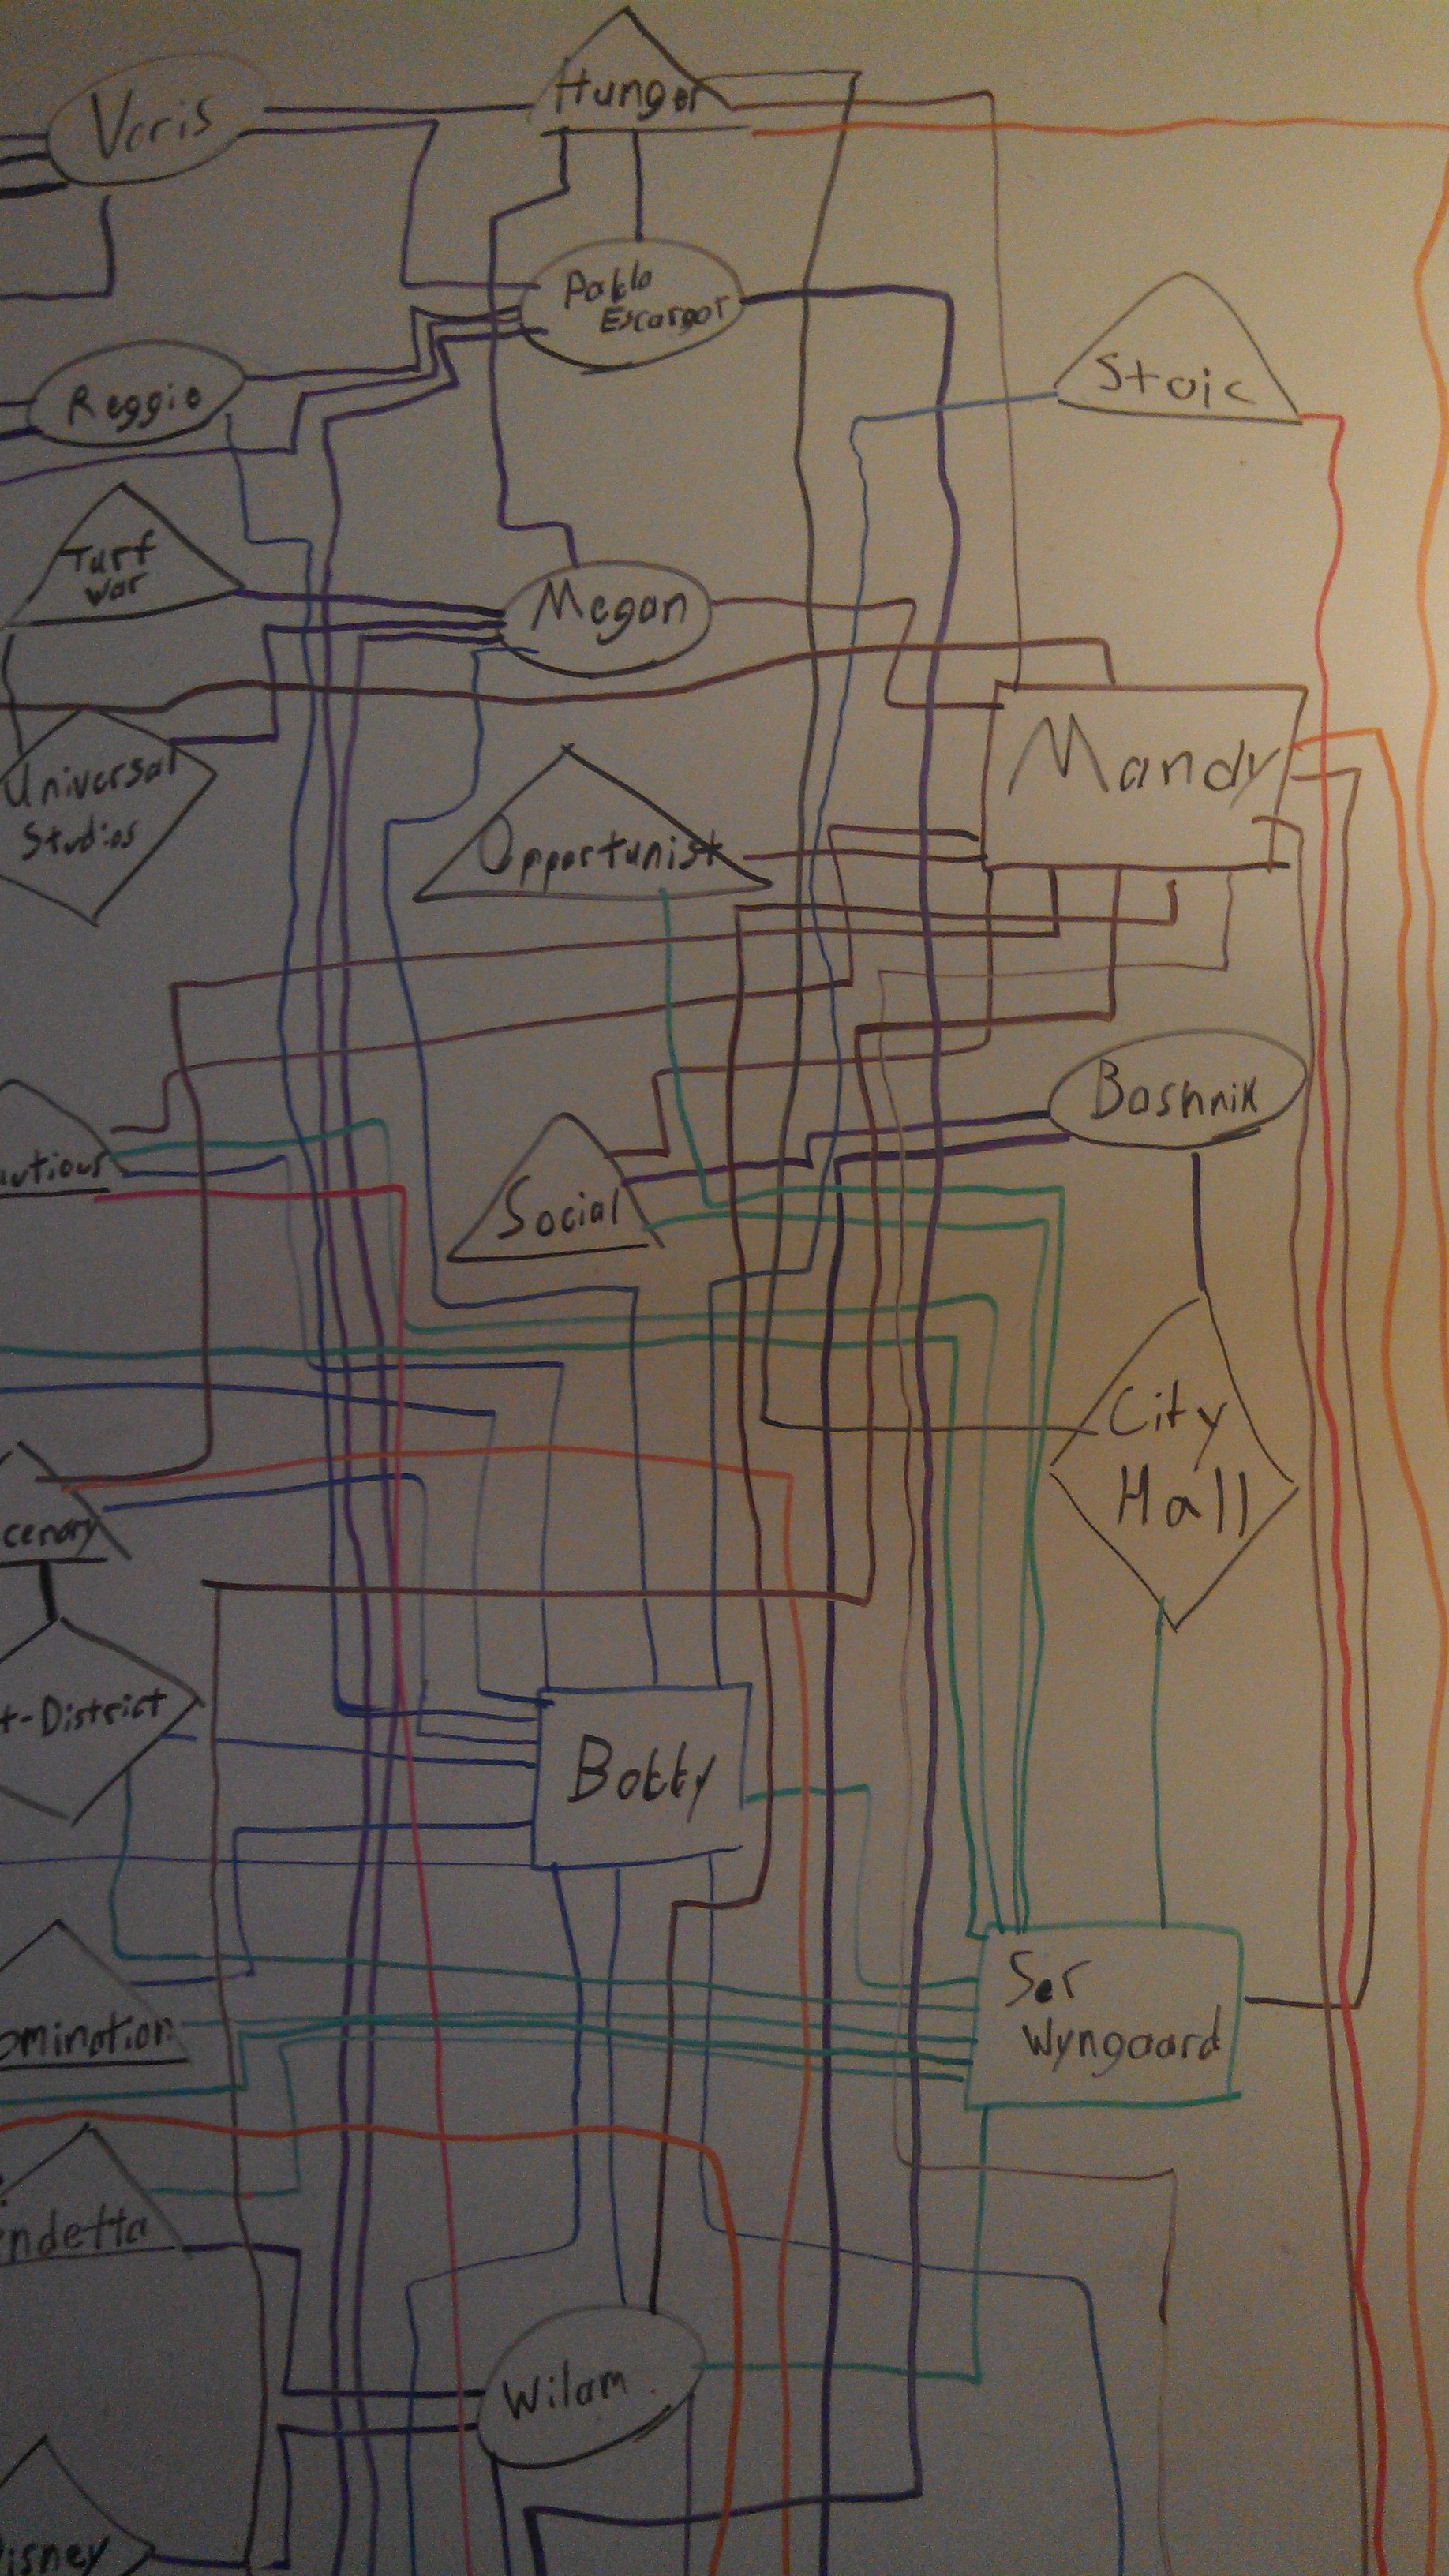 Voris
Hunger
Pablo
Escargot
Stoic
Reggie
Turf
War
Megan
Mandy
Universal
Studios
Opportunist
Boshnik
autious
Social
City
Hall
cenary
t-District
Botty
Ser
Wyngaard
omination
endetta
Wilam
isney